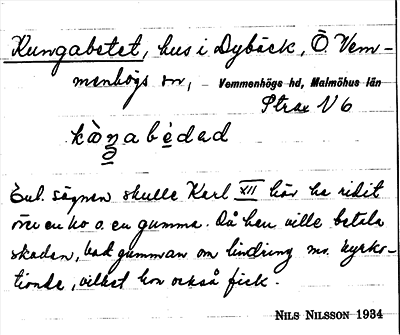 Kungabetet, hus i Dybäck, Ö. Vem-
menhögs sn, Vemmenhögs hd, Malmöhus län
Strax V 6
kàŋabèdad
Enl. sägnen skulle Karl XII här ha ridit
över en ko o. en gumma. Då han ville betala
skadan, bad gumman om lindring m. kyrko-
tionde, vilket hon också fick.
NILS NILSSON 1934